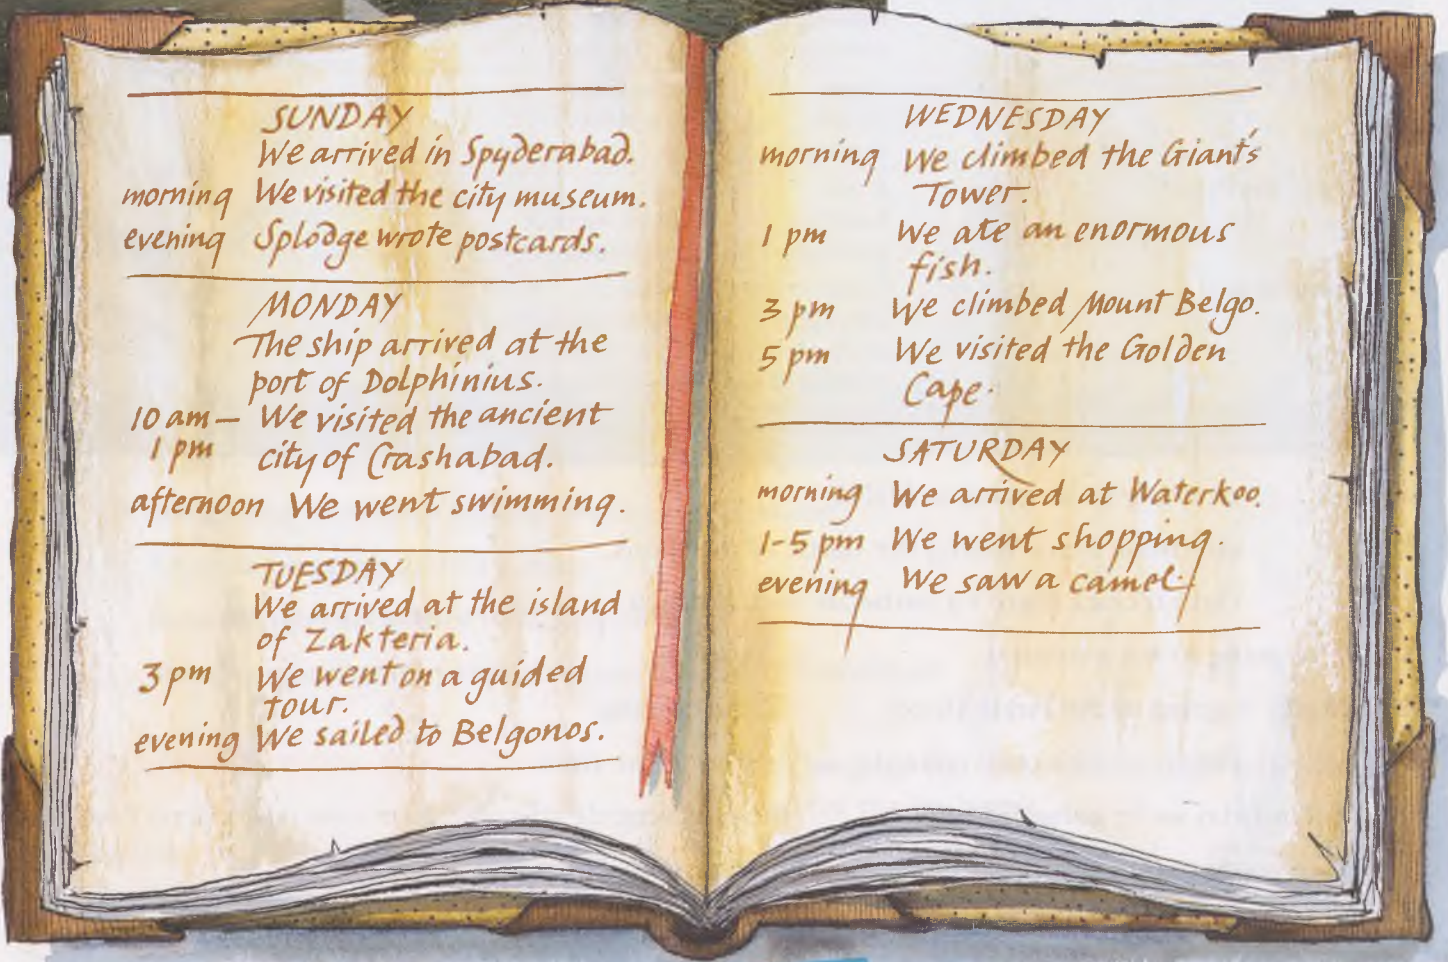 SUNDAY
We arrived in Spyderabad.
morning We visited the city museum.
evening Splodge wrote postcards.
MONDAY
The ship arrived at the
port of Dolphinius.
10 am – We visited the ancient
1 pm city of Crashabad.
afternoon We went swimming.
TUESDAY
We arrived at the island
of Zakteria.
3 pm We went on a guided
tour.
evening We sailed to Belgonos.
WEDNESDAY
morning We climbed the Giant's
Tower.
1 pm We ate an enormous
fish.
3 pm We climbed Mount Belgo.
5 pm We visited the Golden
Cape.
SATURDAY
morning We arrived at Waterkoo.
1-5 pm We went shopping.
evening We saw a camel.